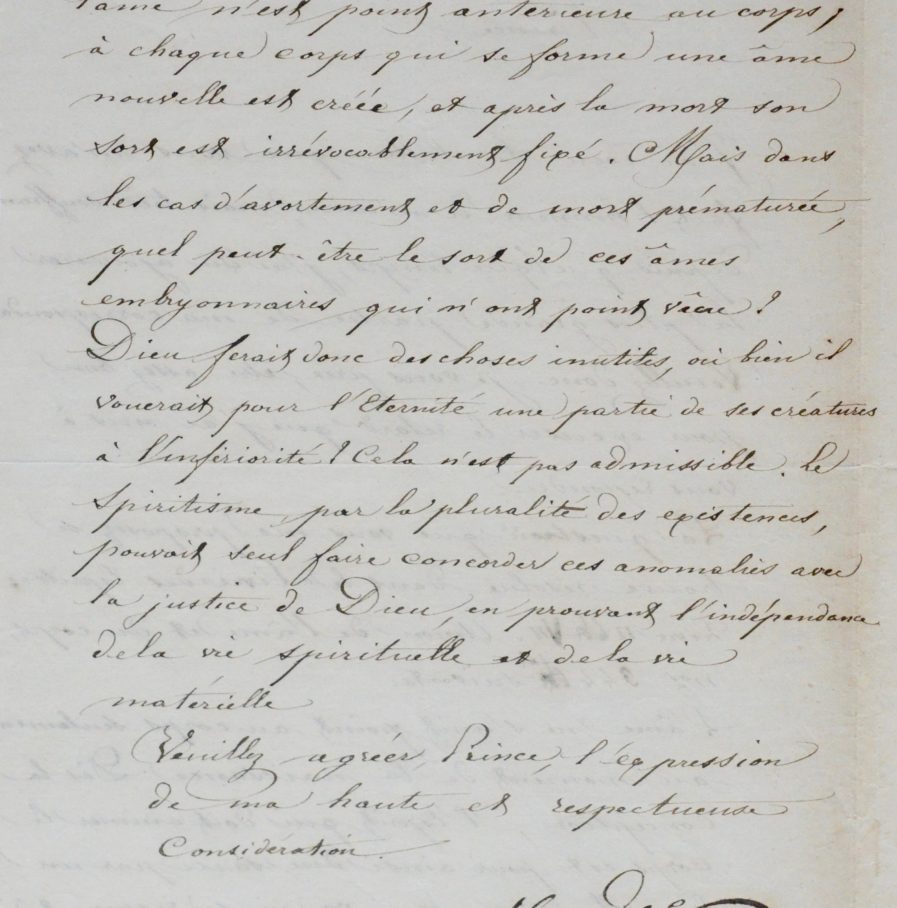 l'âme n'est point antérieure au corps,
à chaque corps qui se forme une âme
nouvelle est créée, et après la mort son
sort est irrévocablement fixé. Mais dans
les cas d'avortement et de mort prématurée,
quel peut-être le sort de ces âmes
embryonnaires qui n'ont point vécu ?
Dieu ferait donc des choses inutiles, ou bien il
vouerait pour l'Eternité une partie de ses créatures
à l'infériorité ! Cela n'est pas admissible. Le
Spiritisme, par la pluralité des existences,
pouvait seul faire concorder ces anomaliés avec
la justice de Dieu, en prouvant l'indépendance
de la vie spirituelle et de la vie
matérielle
Veuillez agréer, Prince, l'expression
de ma haute et respectueuse
Considération.